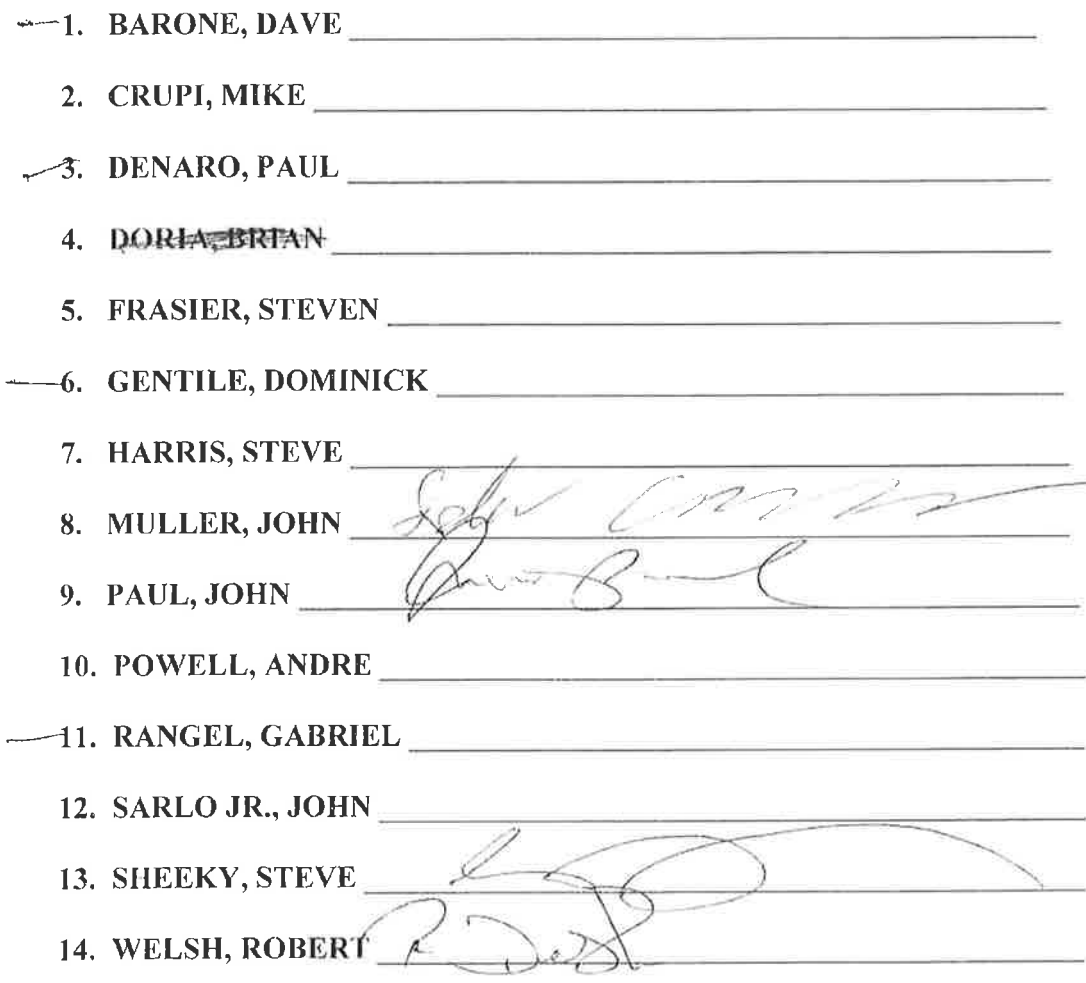 1. BARONE, DAVE
2. CRUPI, MIKE
3. DENARO, PAUL
4. DORIA, BRIAN
5. FRASIER, STEVEN
6. GENTILE, DOMINICK
7. HARRIS, STEVE
8. MULLER, JOHN
9. PAUL, JOHN
10. POWELL, ANDRE
11. RANGEL, GABRIEL
12. SARLO JR., JOHN
13. SHEEKY, STEVE
14. WELSH, ROBERT